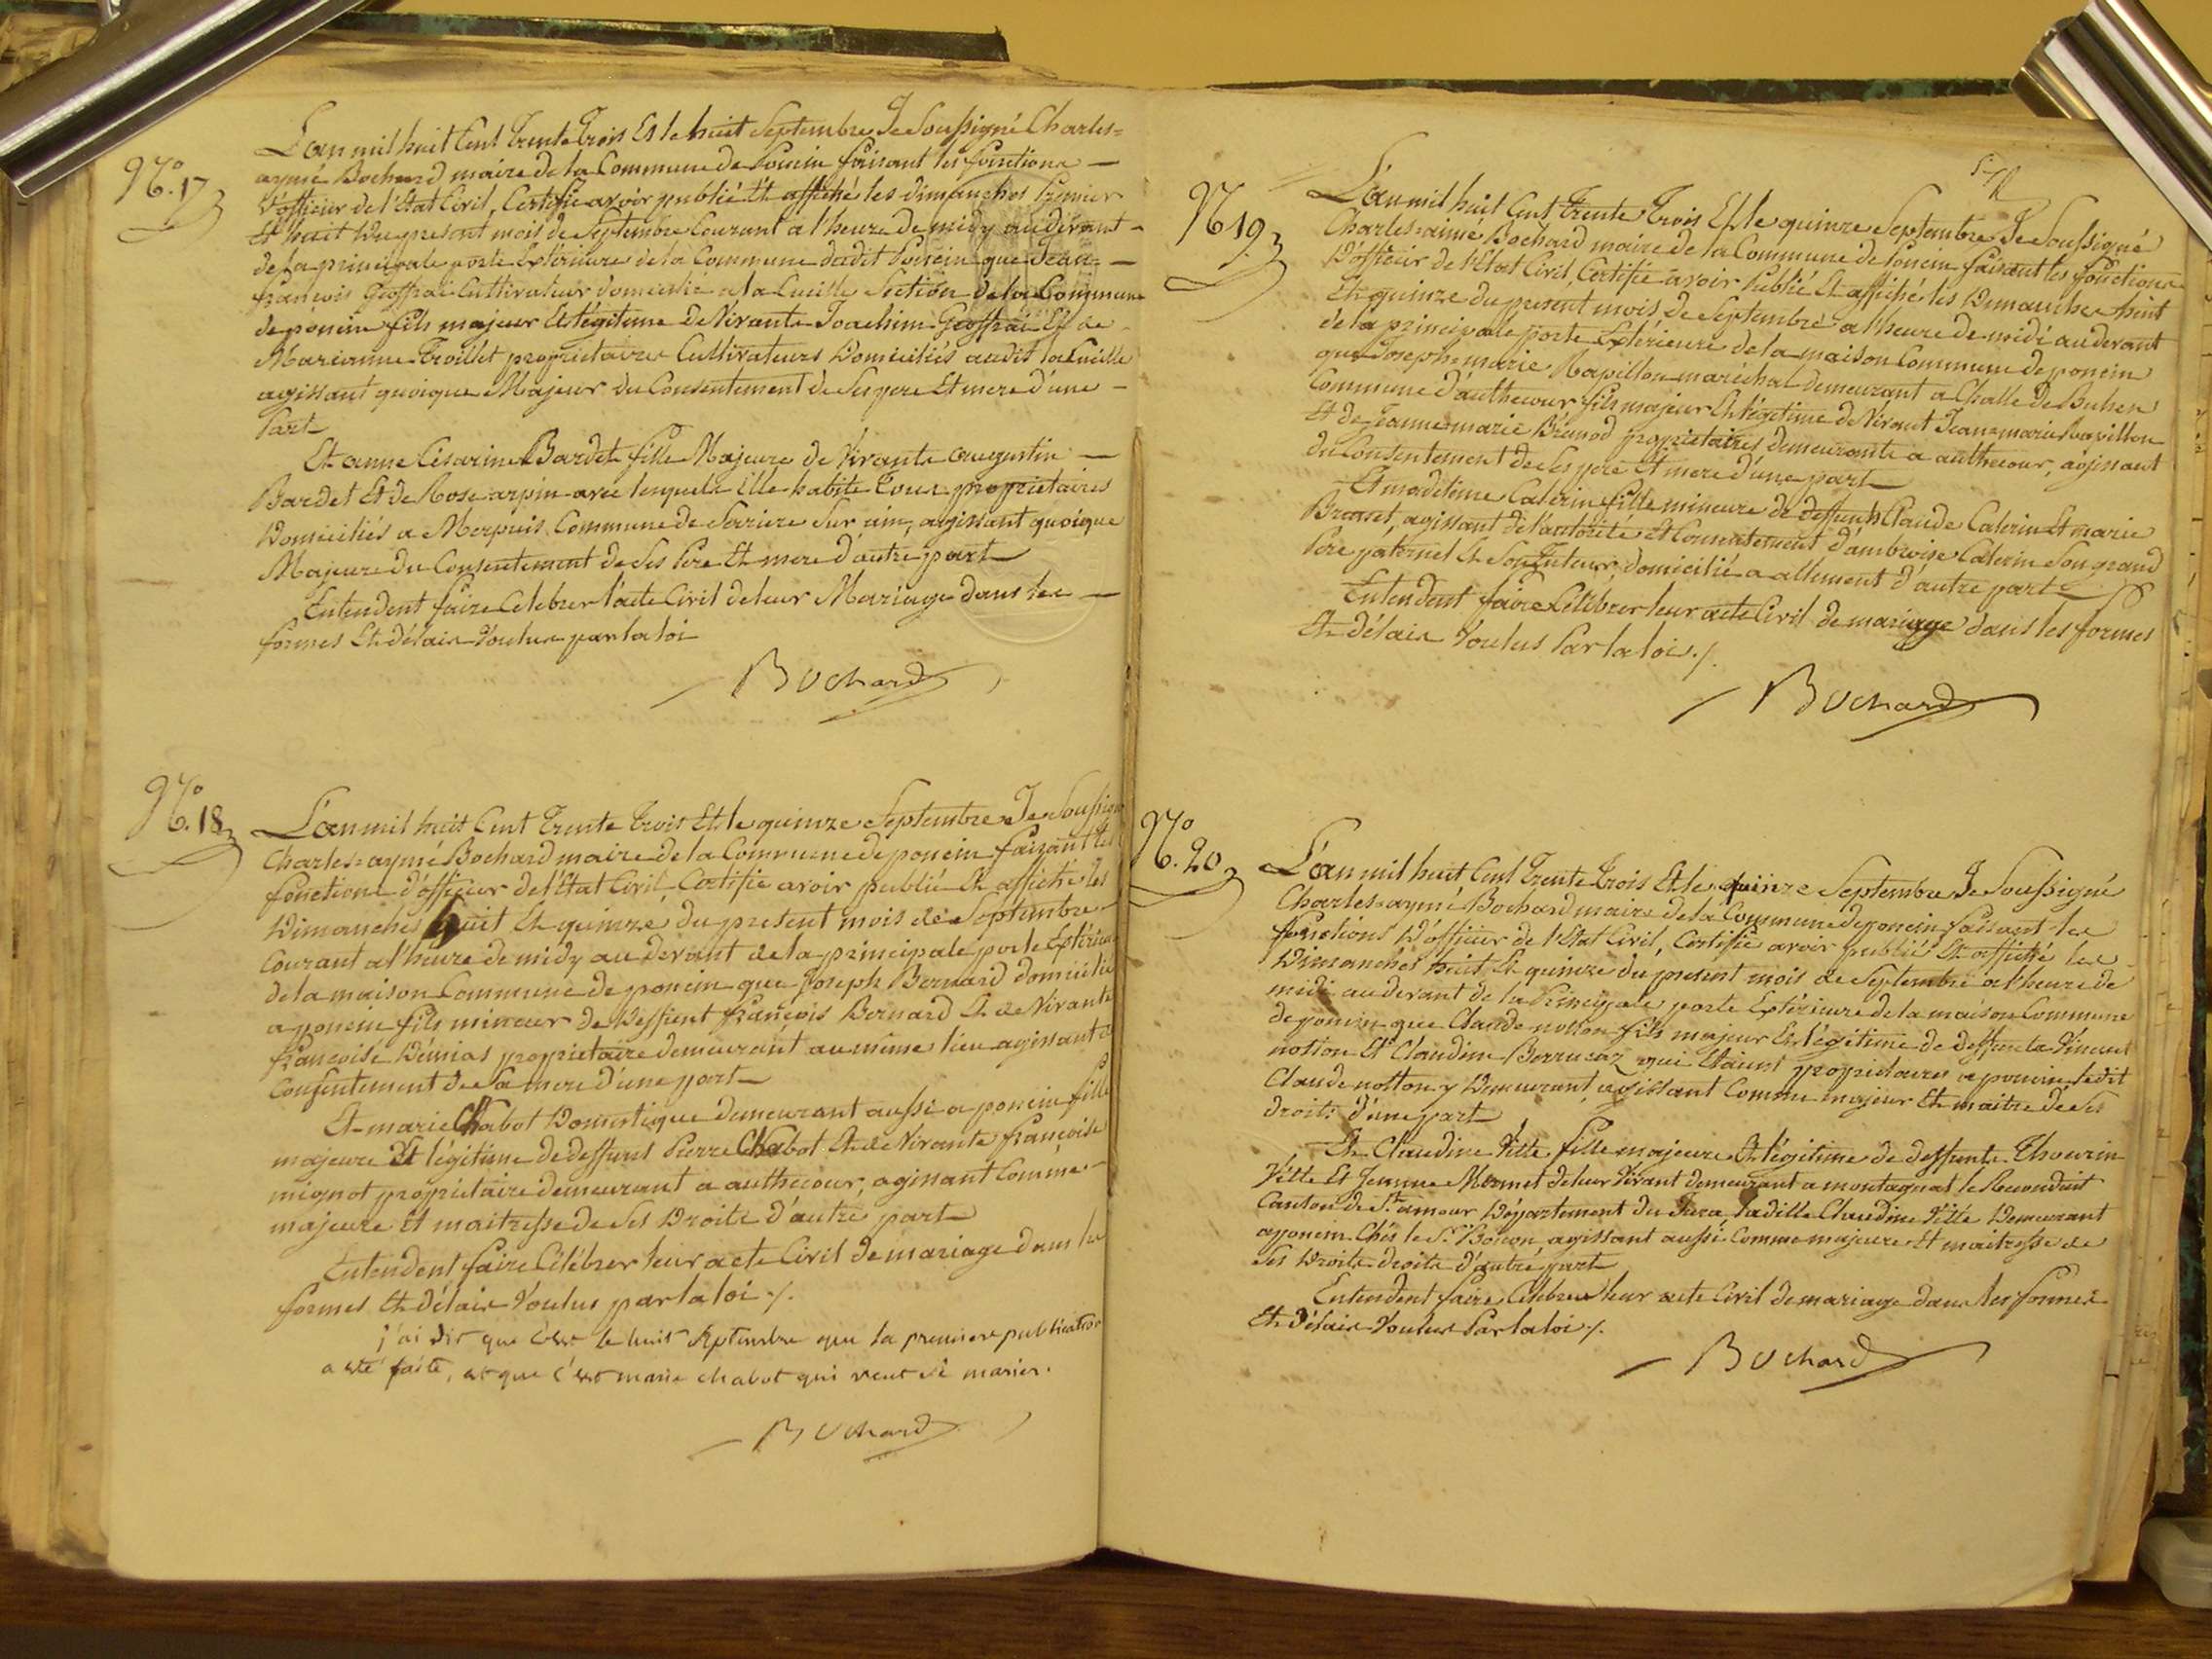 N.o 17
L'an mil huit Cent Trente Trois Et le huit Septembre Je Soussigné Charles=
aymé Bochard maire de la Commune de Poncin faisant les fonctions
d'officier de l'Etat Civil, Certifie avoir publié Et affiché les dimanches Premier
Et huit du present mois de Septembre Courant a l'heure de midy au devant
de la principale porte Extérieure de la Commune dudit Poncin que Jean=
francois Geoffrai Cultivateur domicilié a la Cueille Section de la Commune
de poncin fils majeur Et légitime De Vivants Joachim Geoffrai Et de
Marianne Trollet propriétaires Cultivateurs Domiciliés audit la Cueille
agissant quoique Majeur du Consentement de Ses pere Et mere d'une
Part
Et anne Césarine Bardet fille Majeure de Vivants augustin
Bardet Et de Rose arpin avec lesquels Elle habite Tous propriétaires
Domiciliés a Merpuis Commune de Serriere Sur ain, agissant quoique
Majeure du Consentement de Ses Pere Et mere d'autre part
Entendent faire Celebrer l'acte Civil de leur Mariage dans les
formes Et délais Voulus par la loi
Bochard
N.o 18
L'an mil huit Cent Trente Trois Et le quinze Septembre Je Soussigné
Charles=aymé Bochard maire de la Commune de poncin faisant les
fonctions d'officier de l'Etat Civil Certifie avoir publié Et affiché les
Dimanches huit Et quinze du present mois de Septembre
Courant a l'heure de midy au devant de la principale porte Extérieure
de la maison Commune de poncin que Joseph Bernard domicilié
a poncin fils mineur de Deffunt françois Bernard Et de Vivante
françoise Démias propriétaire demeurant au même lieu agissant du
Consentement de Sa mere d'une part
Et marie Chabot Domestique demeurant aussi a poncin fille
majeure Et légitime de deffunt Pierre Chabot Et de Vivante françoise
mignot propriétaire demeurant a authecour, agissant Comme
majeure Et maitresse de Ses Droits d'autre part
Entendent faire Célébrer leur acte Civil de mariage dans les
formes Et délais Voulus par la loi ./.
j'ai dit que c'est le huit septembre que la premiere publication
a été faite, et que c'est marie chabot qui veut se marier.
Bochard
N.o 19
L'an mil huit Cent Trente Trois Et le quinze Septembre Je Soussigné
Charles=aimé Bochard maire de la Commune de Poncin faisant les fonctions
D'officier de l'Etat Civil, Certifie avoir Publié Et affiché les Dimanches huit
Et quinze du present mois de Septembre a l'heure de midi au devant
de la principale porte Extérieure de la maison Commune de poncin
que Joseph marie Ravillon maréchal demeurant a Challe De Buhen
Commune d'authecour fils majeur Et légitime de Vivant Jean=marie Ravillon
Et de Jeanne=marie Brunod propriétaires demeurants a authecour, agissant
du Consentement de Ses pere Et mere d'une part
Et madelaine Caterin fille mineure de deffunts Claude Caterin Et marie
Brunet, agissant de l'autorité et Consentement d'ambroise Caterin Son grand
Pere paternel Et Son Tuteur, domicilié a allement d'autre part
Entendent faire Célébrer leur acte Civil de mariage dans les formes
Et délais Voulus Par la loi ./.
Bochard
N.o 20
L'an mil huit Cent Trente Trois Et le quinze Septembre Je Soussigné
Charles=aymé Bochard maire de la Commune de poncin faisant les
fonctions D'officier de l'Etat Civil, Certifie avoir publié Et affiché les
Dimanches huit Et quinze du present mois de Septembre a l'heure de
midi au devant de la Principale porte Extérieure de la maison Commune
de poncin que Claude notton fils majeur Et légitime de deffunts Vincent
notton Et Claudine Berrucaz qui Etaient propriétaires a poncin ledit
Claude notton y Demeurant agissant Comme majeur Et maitre de Ses
droits d'une part
Et Claudine Vitte fille majeure Et légitime de deffunts Thoverin
Vitte Et Jeanne Mermet de leur Vivant demeurant a montagnat le Reconduit
Canton de St amour Département du Jura, Ladille Claudine Vitte Demeurant
a poncin Chés le Sr Bolon, agissant aussi Comme majeure Et maitresse de
Ses Droits droits d'autre part
Entendent faire Celebrer leur acte Civil de mariage dans les formes
Et délais Voulus Par la loi ./.
Bochard